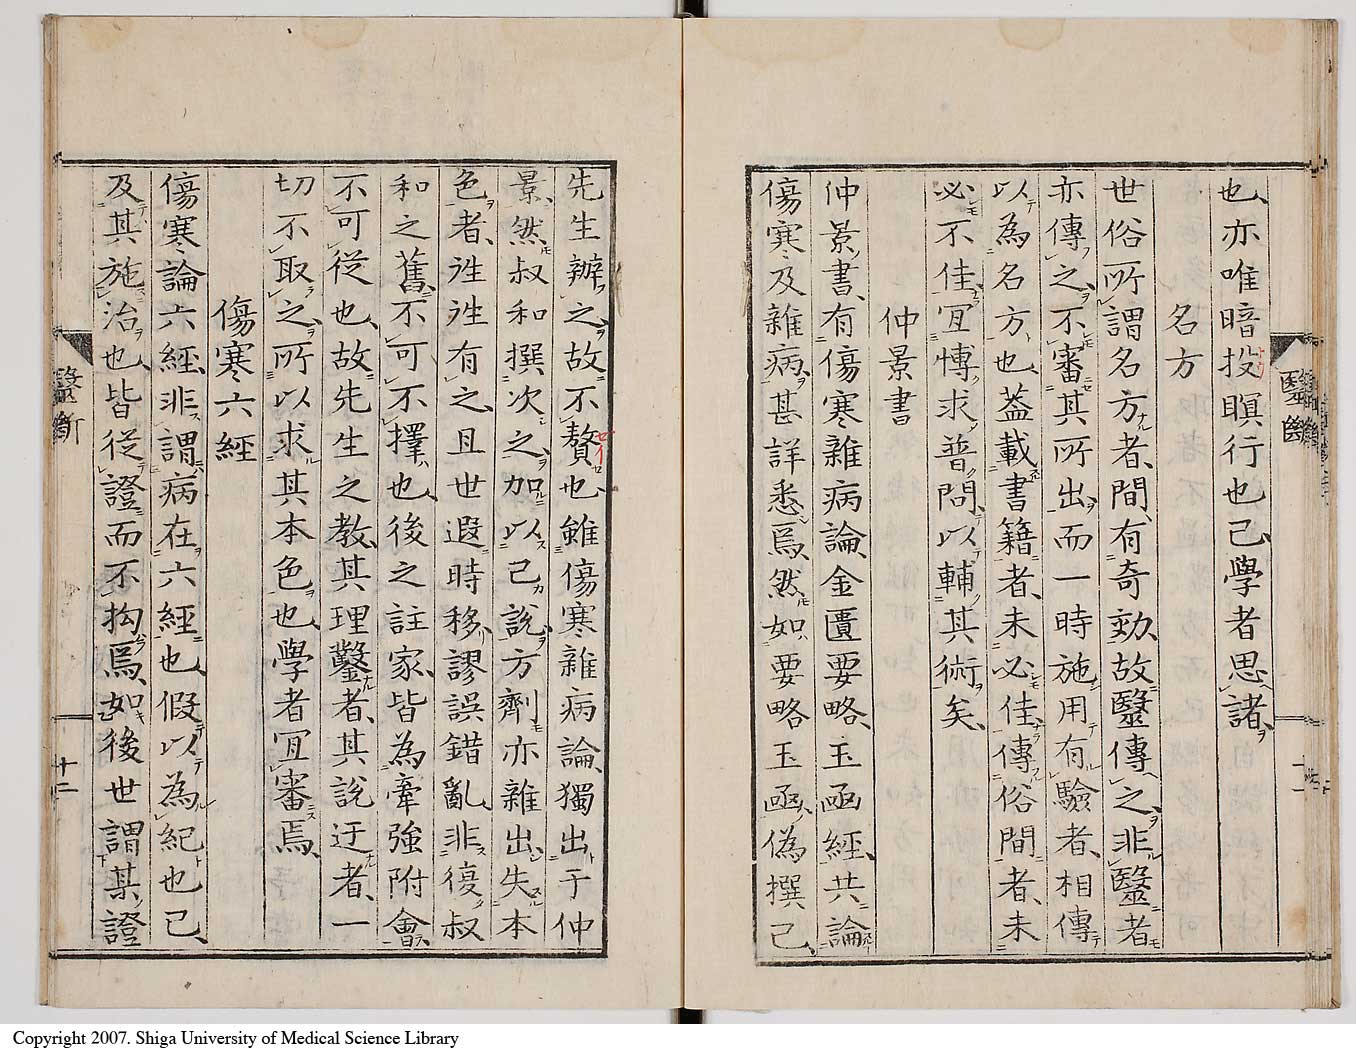 也亦唯暗投瞑行也已學者思諸
名方
世俗所謂名方者間有奇効故毉傳之非毉者
亦傳之不審其所出而一時施用有驗者相傳
以為名方也蓋載書籍者未必佳傳俗間者未
必不佳宜愽求普問以輔其術矣
仲景書
仲景書有傷寒雜病論金匱要略玉函經共論
傷寒及雜病甚詳悉焉然如要略玉函偽撰已
毉斷
十一
先生辨之故不贅也雖傷寒雜病論獨出于仲
景然叔和撰次之加以己說方劑亦雜出失本
色者往往有之且世遐時移謬誤錯亂非復叔
和之舊不可不擇也後之註家皆為牽強附會
不可從也故先生之教其理鑿者其說迂者一
切不取之所以求其本色也學者宜審焉
傷寒六經
傷寒論六經非謂病在六經也假以為紀也已
及其施治也皆從證而不拘焉如後世謂某證
毉斷
十二
Copyright 2007. Shiga University of Medical Science Library